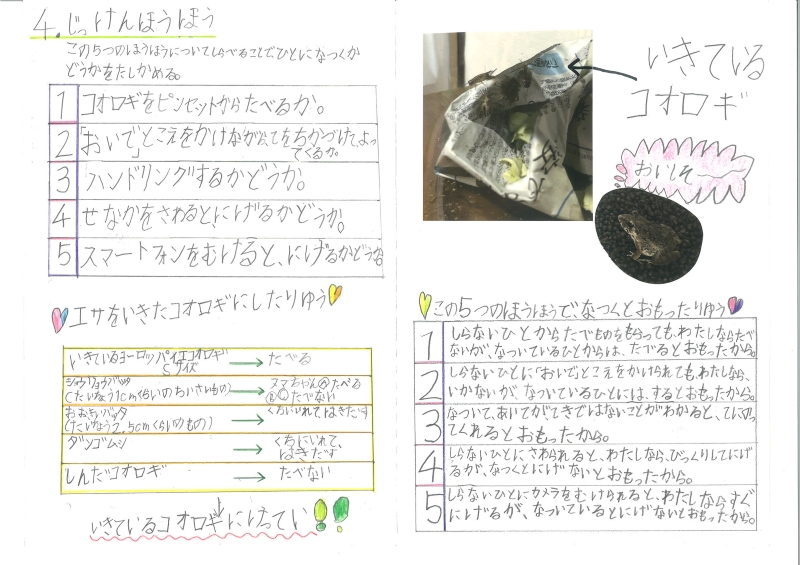 4.じっけんほうほう
この5つのほうほうについてしらべることでひとになつくか
どうかをたしかめる。
1 コオロギをピンセットからたべるか。
2 「おいで」とこえをかけながら、てをちかづけて、よっ
てくるか。
3 ハンドリングするかどうか。
4 せなかをさわると、にげるかどうか。
5 スマートフォンをむけると、にげるかどうか。
エサをいきたコオロギにしたりゆう
いきているヨーロッパイエコオロギ
Sサイズ → たべる
ショウリョウバッタ
(たいちょう1cmくらいのちいさいもの) → ヌマちゃんⒶたべる
ⒷⒸたべない
おおきいバッタ
(たいちょう2.5cmくらいのもの) → くちにいれてはきだす
ダンゴムシ → くちにいれて、
はきだす
しんだコオロギ → たべない
いきているコオロギにけってい!!
いきている
コオロギ
おいしそ〜
この5つのほうほうで、なつくとおもったりゆう
1 しらないひとからたべものをもらっても、わたしならたべ
ないが、なついているひとからは、たべるとおもったから。
2 しらないひとに「おいで」とこえをかけられても、わたしなら、
いかないが、なついているひとには、するとおもったから。
3 なついて、あいてがてきではないことがわかると、てにのっ
てくれるとおもったから。
4 しらないひとにさわられると、わたしなら、びっくりしてにげ
るが、なつくとにげないとおもったから。
5 しらないひとにカメラをむけられると、わたしならすぐ
にげるが、なついているとにげないとおもったから。